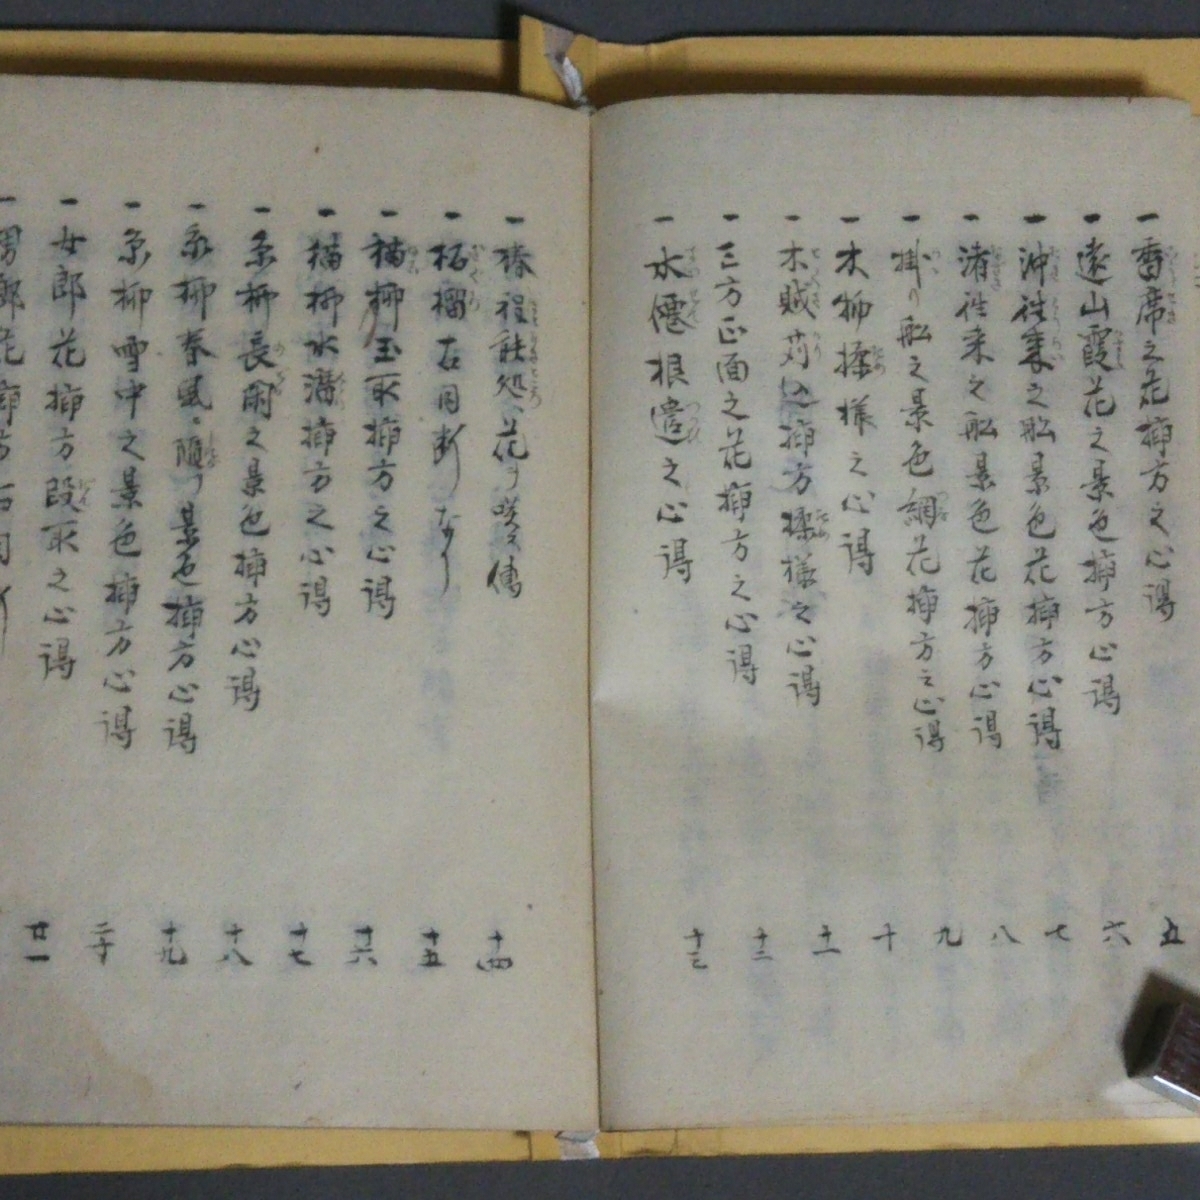 一 席之花挿方之心得 五
一 遠山霞花之景色挿方心得 六
一 沖往来之舩景色花挿方心得 七
一 渚往来之舩景色花挿方心得 八
一 掛り舩之景色綱花挿方之心得 九
一 木物撓様之心得 十
一 木賊苅込挿方撓様之心得 十一
一 三方正面之花挿方之心得 十二
一 水僊根遣之心得 十三
一 椿程能処、花ヲ咲ス傳 十四
一 柘榴右同断なり 十五
一 猫柳玉取挿方之心得 十六
一 猫柳水潜挿方之心得 十七
一 糸柳長閑之景色挿方心得 十八
一 糸柳春風、随フ景色挿方心得 十九
一 糸柳雪中之景色挿方心得 二十
一 女郎花挿方段取之心得 廿一
一 男郎花挿方右同断